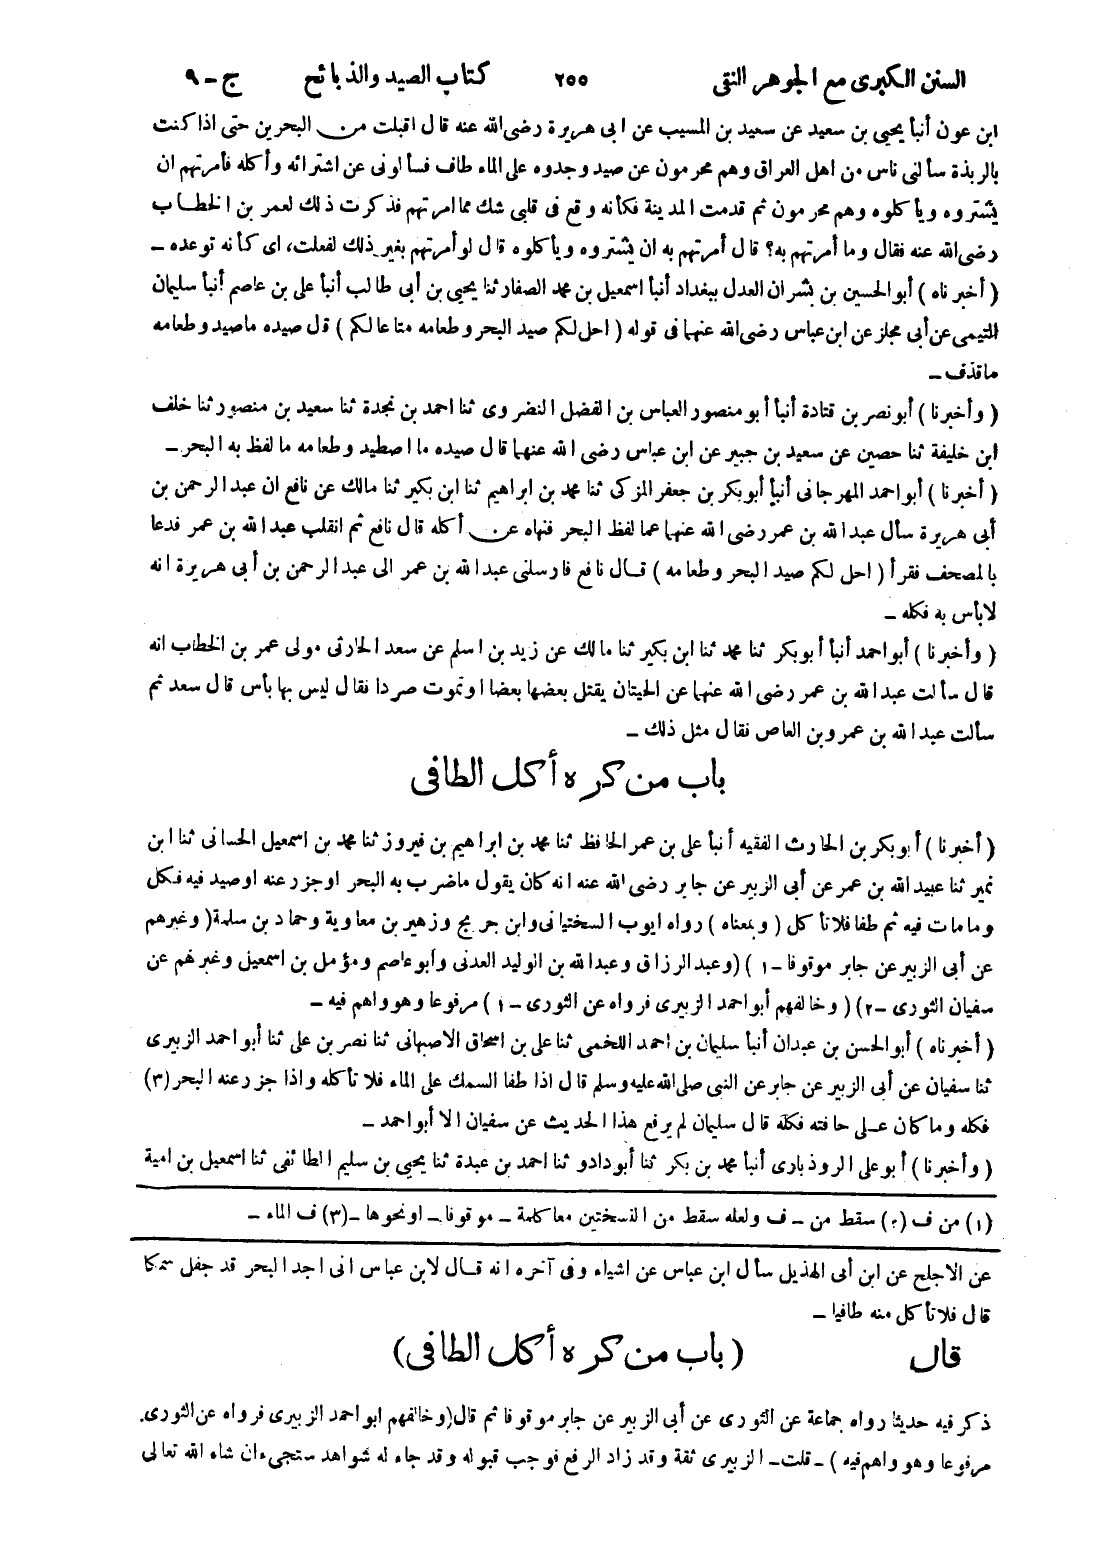 السنن الكبرى مع الجوهر النقى ٢٥٥ كتاب الصيد والذبائح ج - ٩
ابن عون أنبأ يحيى بن سعيد عن سعيد بن المسيب عن ابى هريرة رضى الله عنه قال اقبلت من البحرين حتى اذا كنت
بالربذة سألنى ناس من اهل العراق وهم محرمون عن صيد وجدوه على الماء طاف فسألونى عن اشترائه وأكله فأمرتهم ان
يشتروه ويأكلوه وهم محرمون ثم قدمت المدينة فكأنه وقع فى قلبى شك مما امرتهم فذكرت ذلك لعمر بن الخطاب
رضى الله عنه فقال وما أمرتهم به؟ قال أمرتهم به ان يشتروه ويأكلوه قال لو أمرتهم بغير ذلك لفعلت، اى كأنه توعده ـ
( أخبرناه ) أبو الحسين بن بشران العدل ببغداد أنبأ اسمعيل بن محمد الصفار ثنا يحيى بن أبى طالب أنبأ على بن عاصم أنبأ سليمان
التيمى عن أبى مجلز عن ابن عباس رضى الله عنهما فى قوله ( احل لكم صيد البحر وطعامه متاعا لكم ) قال صيده ماصيد وطعامه
ماقذف ـ
( وأخبرنا ) أبو نصر بن قتادة أنبأ أبو منصور العباس بن الفضل النضروى ثنا احمد بن نجدة ثنا سعيد بن منصور ثنا خلف
ابن خليفة ثنا حصين عن سعيد بن جبير عن ابن عباس رضى الله عنهما قال صيده ما اصطيد وطعامه ما لفظ به البحر ـ
( أخبرنا ) أبو احمد المهرجانى أنبأ أبو بكر بن جعفر المزكى ثنا محمد بن ابراهيم ثنا ابن بكير ثنا مالك عن نافع ان عبد الرحمن بن
أبى هريرة سأل عبد الله بن عمر رضى الله عنهما عما لفظ البحر فنهاه عن أكله قال نافع ثم انقلب عبد الله بن عمر فدعا
بالمصحف فقرأ ( احل لكم صيد البحر وطعامه ) قال نافع فارسلنى عبد الله بن عمر الى عبد الرحمن بن أبى هريرة انه
لابأس به فكله ـ
( وأخبرنا ) أبو احمد أنبأ أبو بكر ثنا محمد ثنا ابن بكير ثنا مالك عن زيد بن اسلم عن سعد الحارثى مولى عمر بن الخطاب انه
قال سألت عبد الله بن عمر رضى الله عنهما عن الحيتان يقتل بعضها بعضا اوتموت صردا فقال ليس بها بأس قال سعد ثم
سألت عبد الله بن عمرو بن العاص نقال مثل ذلك ـ
باب من كره أكل الطافى
( أخبرنا ) أبو بكر بن الحارث الفقيه أنبأ على بن عمر الحافظ ثنا محمد بن ابراهيم بن فيروز ثنا محمد بن اسمعيل الحسانى ثنا ابن
نمير ثنا عبيد الله بن عمر عن أبى الزبير عن جابر رضى الله عنه انه كان يقول ماضرب به البحر اوجزر عنه اوصيد فيه فكل
ومامات فيه ثم طفا فلا تأكل ( وبمعناه ) رواه ايوب السختيانى وابن جريج وزهير بن معاوية وحماد بن سلمة ( وغيرهم
عن أبى الزبير عن جابر موقوفا -١ ) (وعبد الرزاق وعبد الله بن الوليد العدنى وأبو عاصم ومؤمل بن اسمعيل وغيرهم عن
سفيان الثورى -٢) ( وخالفهم أبو احمد الزبيرى فرواه عن الثورى -١ ) مرفوعا وهو واهم فيه ـ
( أخبرناه ) أبو الحسن بن عبدان أنبأ سليمان بن احمد اللخمى ثنا على بن اسحاق الاصبهانى ثنا نصر بن على ثنا أبو احمد الزبيرى
ثنا سفيان عن أبى الزبير عن جابر عن النبى صلى الله عليه وسلم قال اذا طفا السمك على الماء فلا تأكله واذا جزر عنه البحر (٣)
فكله وما كان على حافته فكله قال سليمان لم يرفع هذا الحديث عن سفيان الا أبو احمد ـ
( وأخبرنا ) أبو على الروذبارى أنبأ محمد بن بكر ثنا أبو دادو ثنا احمد بن عبدة ثنا يحيى بن سليم الطائفى ثنا اسمعيل بن امية
(١) من ف (٢) سقط من - ف ولعله سقط من النسختين معا كلمة - موقوفا - اونحوها -(٣) ف الماء ـ
عن الاجلح عن ابن أبى الهذيل سأل ابن عباس عن اشياء وفى آخره انه قال لابن عباس انى اجد البحر قد جفل سمكا
قال فلا تأكل منه طافيا ـ
قال ( باب من كره أكل الطافى )
ذكر فيه حديثا رواه جماعة عن الثورى عن أبى الزبير عن جابر موقوفا ثم قال (وخالفهم ابو احمد الزبيرى فرواه عن الثورى
مرفوعا وهو واهم فيه ) - قلت - الزبيرى ثقة وقد زاد الرفع فوجب قبوله وقد جاء له شواهد ستجىء ان شاء الله تعالى